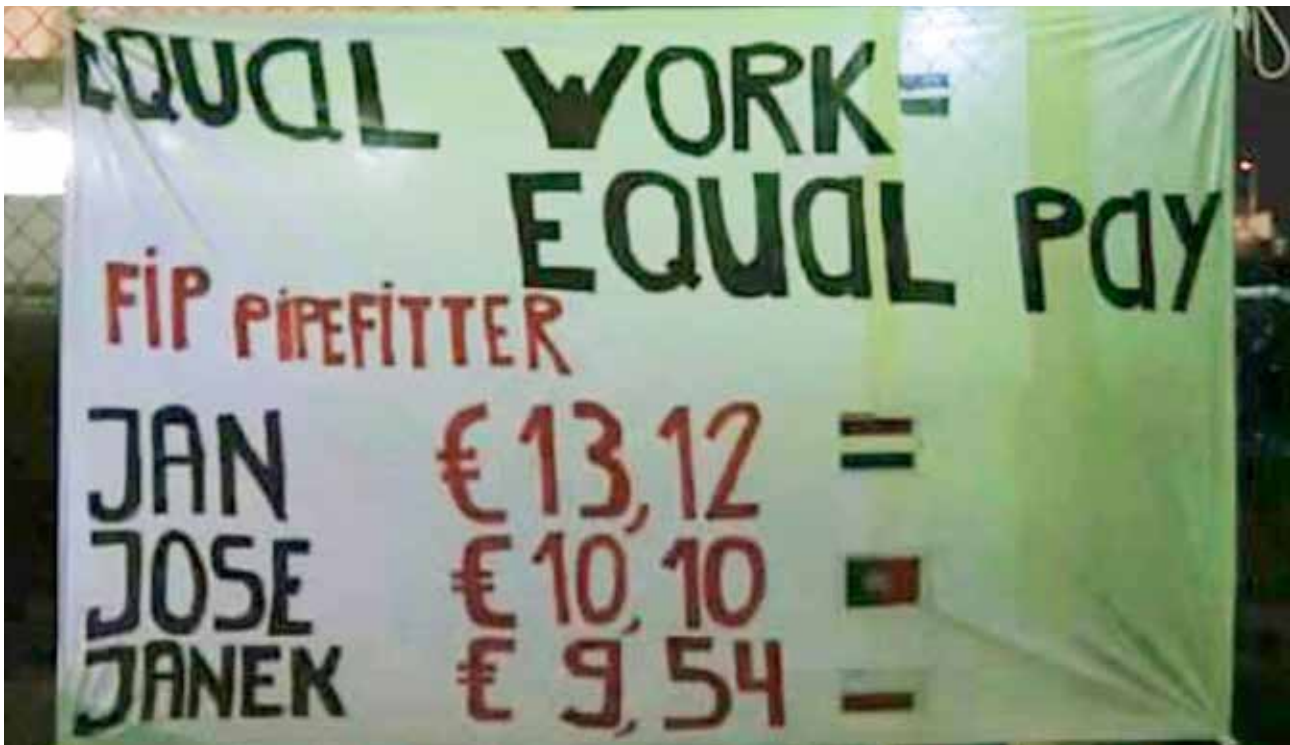 EQUAL WORK
EQUAL PAY
FIP PIPEFITTER
JAN € 13,12
JOSE € 10,10
JANEK € 9,54